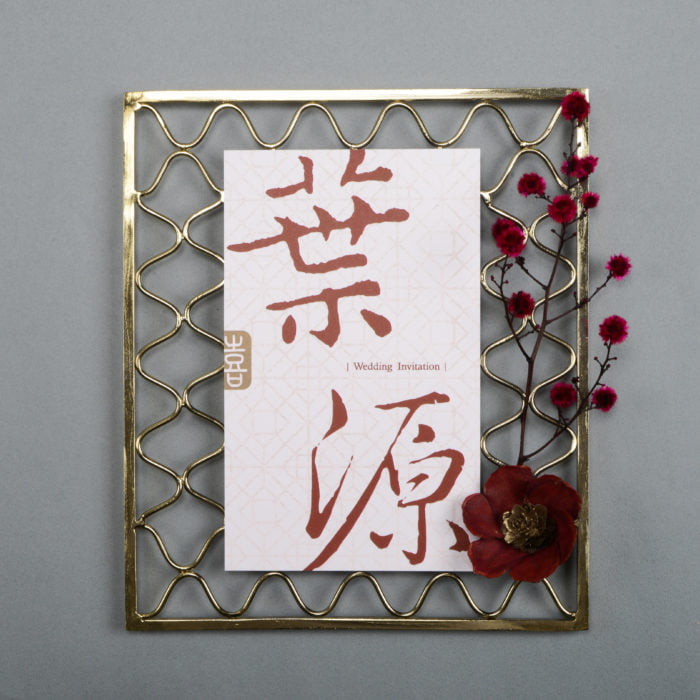 葉
| Wedding Invitation |
源